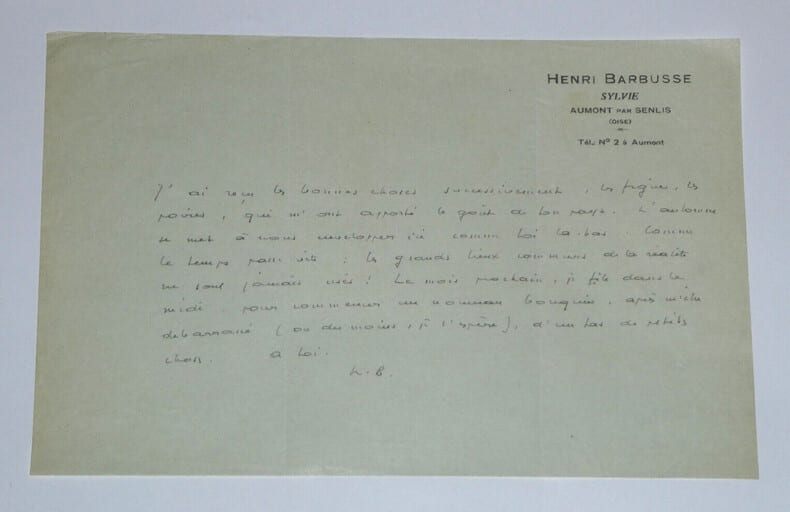 HENRI BARBUSSE
SYLVIE
AUMONT PAR SENLIS
(OISE)
Tél.: Nº 2 à Aumont
J'ai reçu les bonnes choses successivement, les figues, les
poires, qui m'ont apporté le goût de ton pays. L'automne
se met à nous envelopper ici comme toi là-bas. Comme
le temps passe vite : les grands lieux communs de la réalité
ne sont jamais usés ! Le mois prochain, je file dans le
midi pour commencer un nouveau bouquin, après m'être
débarrassé (ou du moins, je l'espère), d'un tas de petits
choses. A toi.
H.B.